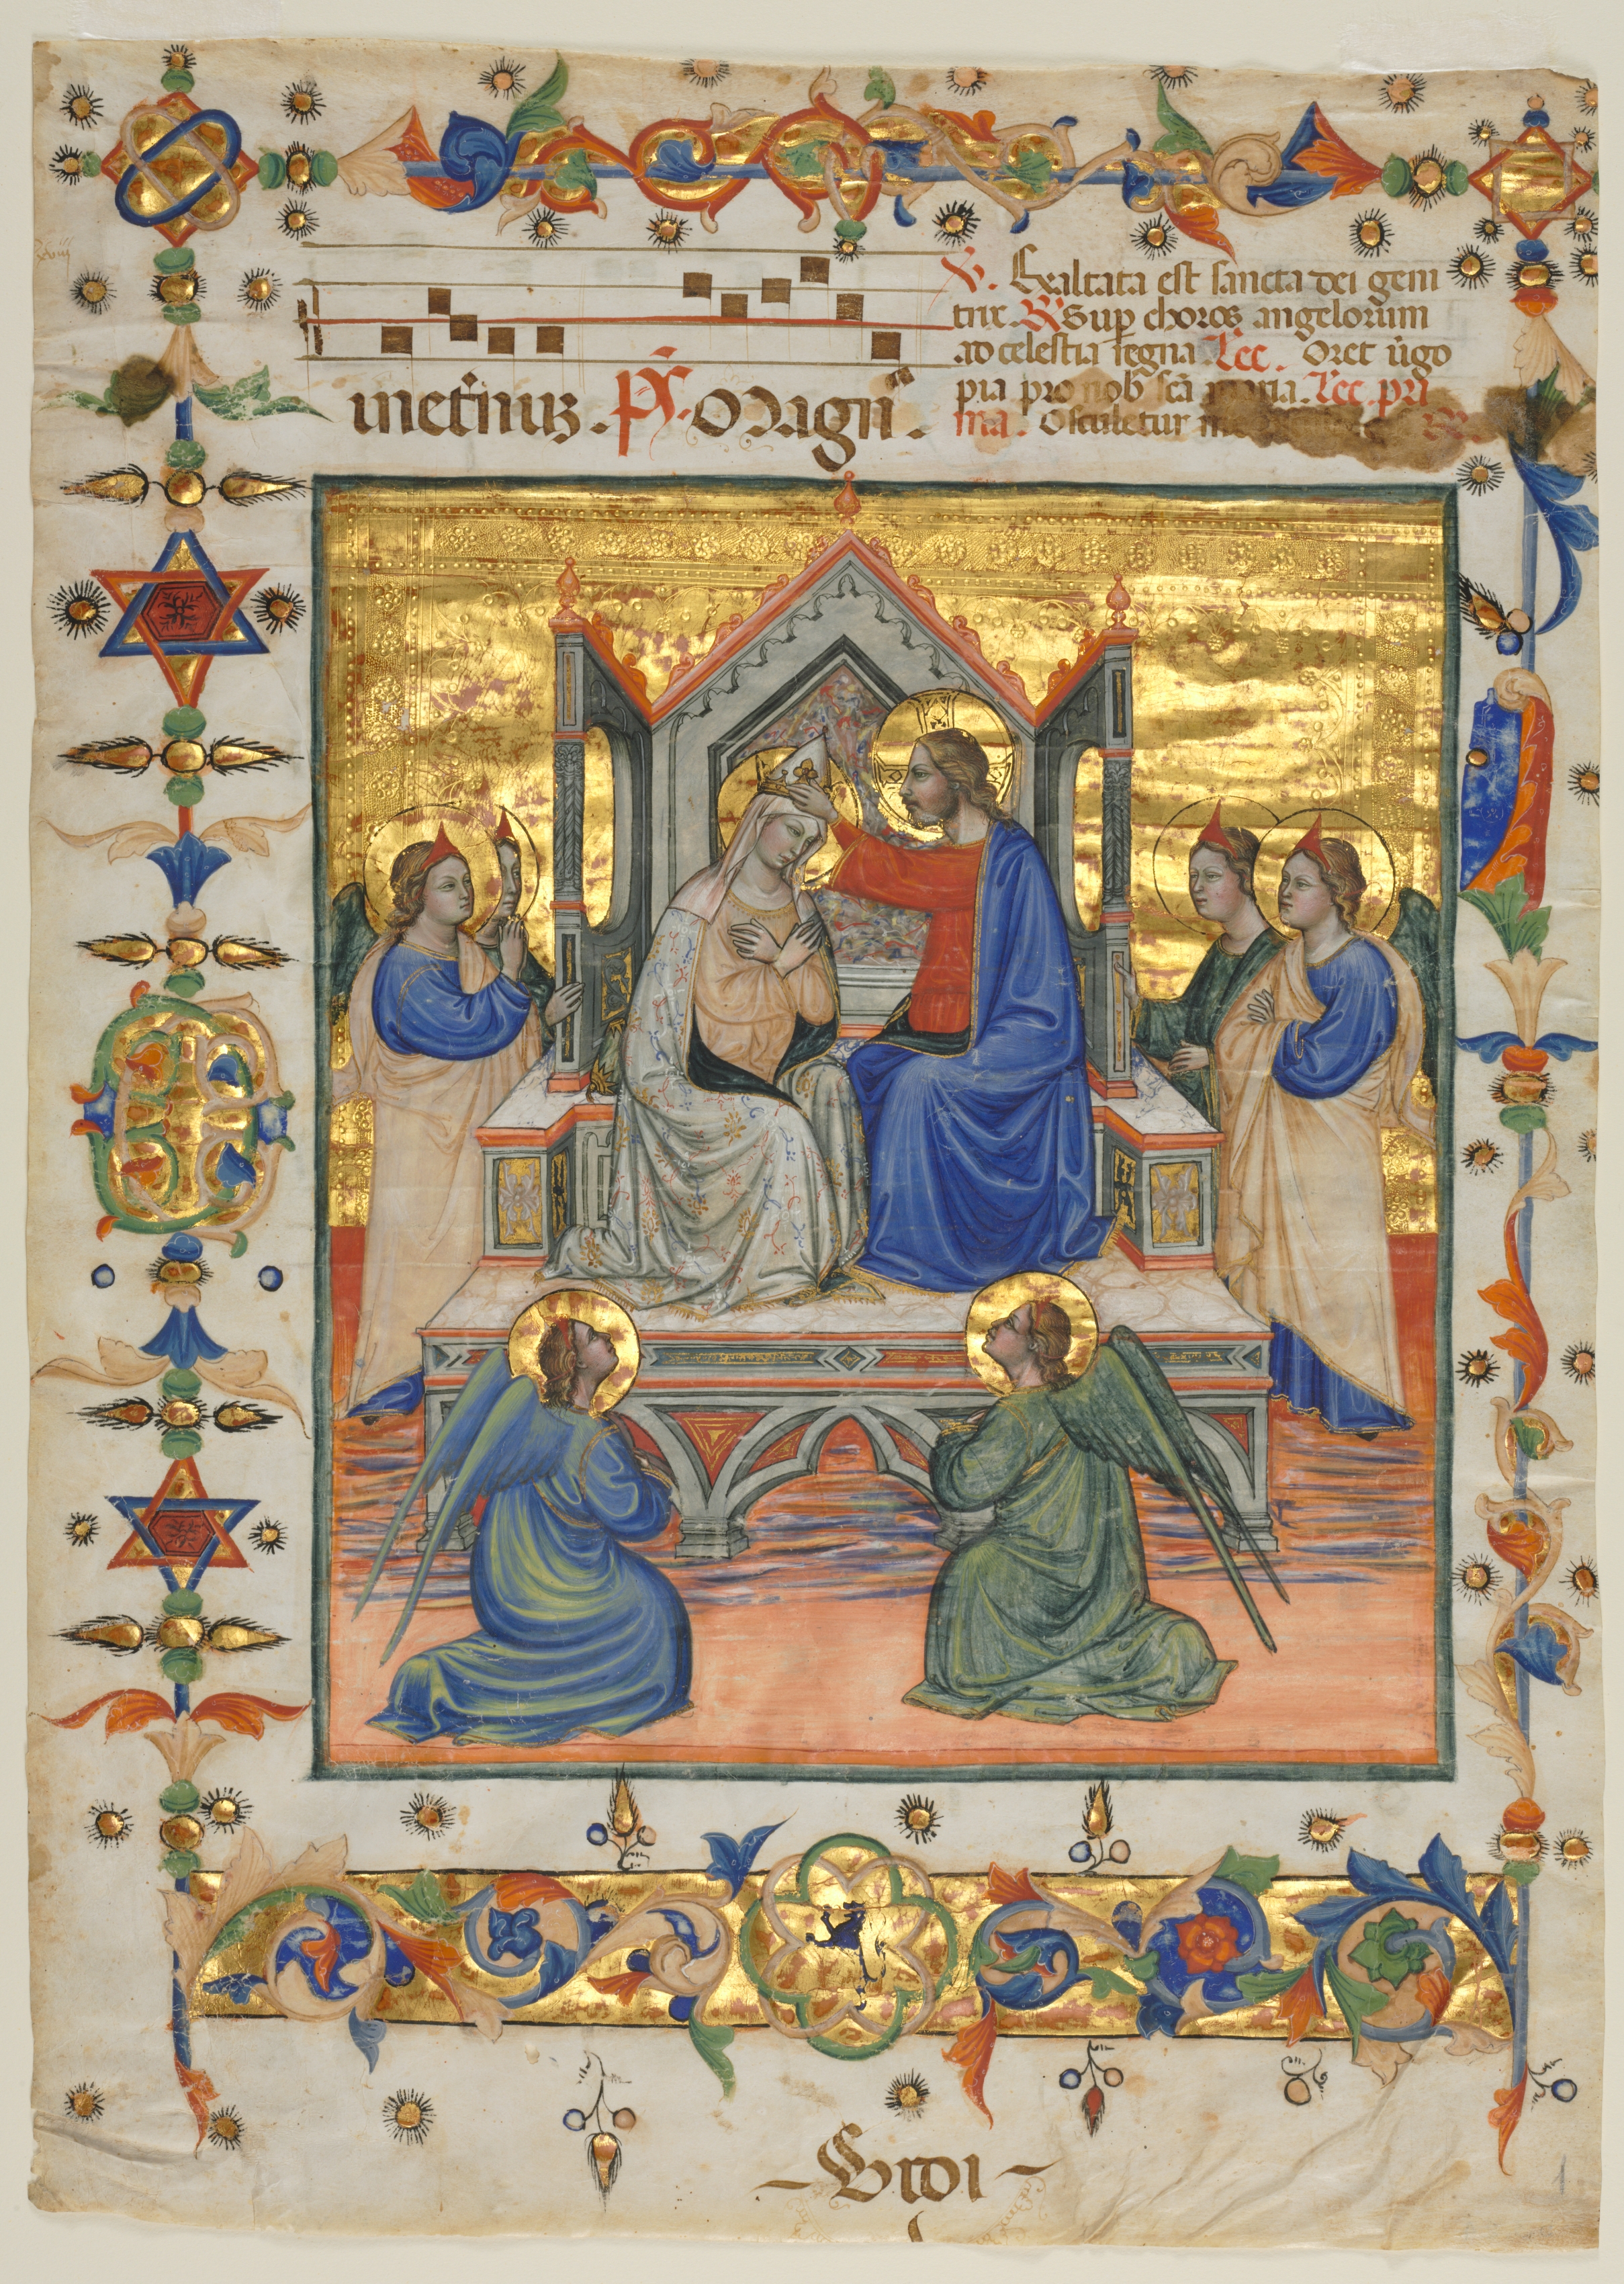 meternus. Ps. Magn̄.
V. Exaltata est sancta dei geni
trix. R Sup choros angelorum
ad celestia regna Lec. Oret v̄go
pia pro nob sc̄a maria. Lec. pri
ma. Osculetur me
Vidi
1